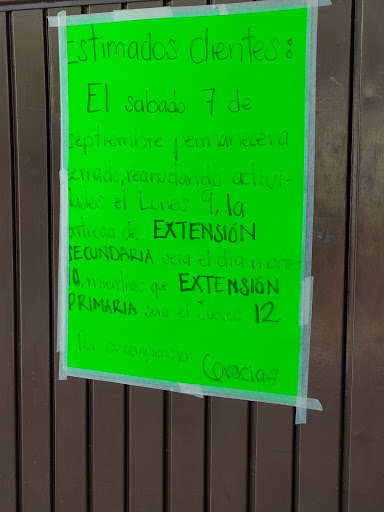 Estimados clientes:
El sabado 7 de
septiembre permanecera
cerrado, reanudando activi-
dades el Lunes 9, la
entrega de EXTENSIÓN
SECUNDARIA sera el dia martes
10, mientras que EXTENSIÓN
PRIMARIA sera el Jueves 12
Por su comprension
Gracias